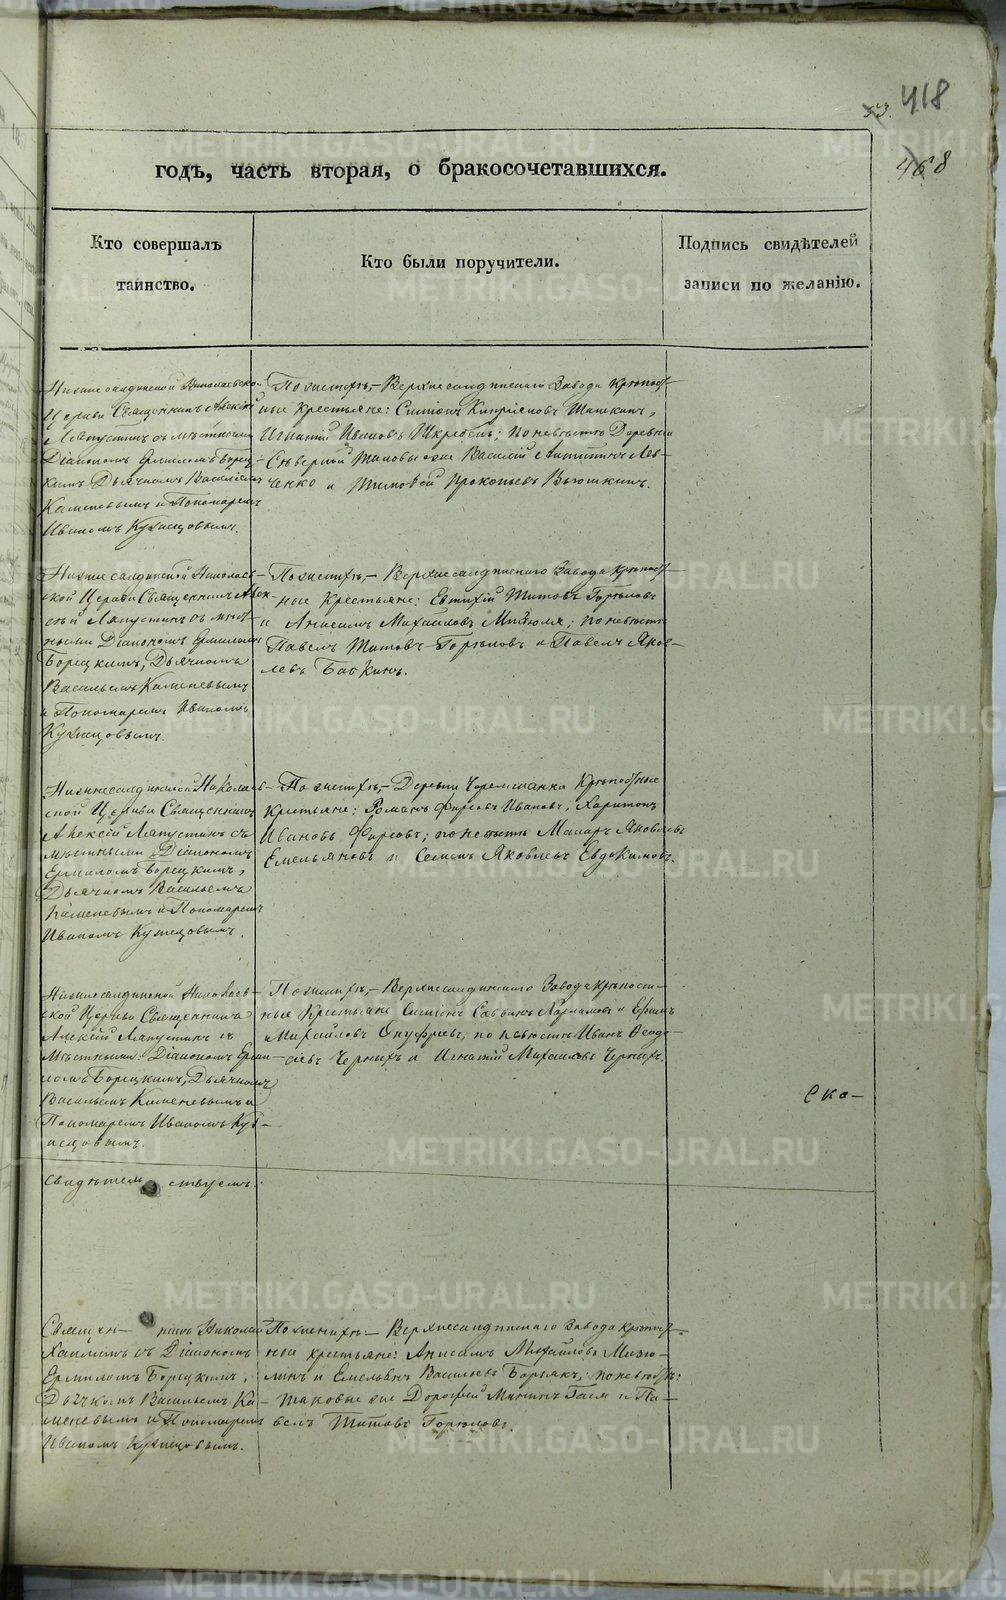 53. 418
468
годъ, часть вторая, о бракосочетавшихся.
Кто совершалъ
таинство.
Кто были поручители.
Подпись свидѣтелей
записи по желанію.
Нижнесалдинской Николаевской
Церкви Священникъ Алексій
Ляпустинъ съ мѣстными
Діакономъ Ермиломъ Борец-
кимъ, Дьячкомъ Васильемъ
Каменевымъ и Пономаремъ
Иваномъ Кузнецовымъ.
По женихѣ,- Верхнесалдинскаго Завода крѣпост-
ные крестьяне: Симіонъ Кипріяновъ
Игнатій Ивановъ; по невѣстѣ Деревни
Сѣверной таковые же Василій Лев-
ченко и Тимофей Прокопьевъ Вьюшкинъ.
Нижнесалдинской Николаев-
ской Церкви Священникъ Алек-
сѣй Ляпустинъ съ мѣст-
ными Діакономъ Ермиломъ
Борецкимъ, Дьячкомъ
Васильемъ Каменевымъ
и Пономаремъ Иваномъ
Кузнецовымъ.
По женихѣ,- Верхнесалдинскаго Завода крѣпост-
ные Крестьяне: Евтихій Титовъ Горѣловъ
и Анисимъ Михайловъ; по невѣстѣ
Павелъ Титовъ Горѣловъ и Павелъ Яков-
левъ Бабкинъ.
Нижнесалдинской Николаев-
ской Церкви Священникъ
Алексій Ляпустинъ съ
мѣстными Діакономъ
Ермиломъ Борецкимъ,
Дьячкомъ Васильемъ
Каменевымъ и Пономаремъ
Иваномъ Кузнецовымъ.
По женихѣ,- Деревни Крѣпостные
Крестьяне: Романъ Фирсовъ Ивановъ, Харитонъ
Ивановъ Фирсовъ; по невѣстѣ Макаръ Яковлевъ
Емельяновъ и Семенъ Яковлевъ Евдокимовъ.
Нижнесалдинской Николаев-
ской Церкви Священникъ
Алексій Ляпустинъ съ
Мѣстными Діакономъ Ерми-
ломъ Борецкимъ, Дьячкомъ
Васильемъ Каменевымъ и
Пономаремъ Иваномъ Куз-
нецовымъ.
По женихѣ,- Верхнесалдинскаго Завода Крѣпост-
ные Крестьяне Симіонъ Саввинъ Харламовъ и Ефимъ
Михайловъ Онуфріевъ, по невѣстѣ Иванъ Ѳедо-
сѣевъ Черныхъ и Игнатій Михайловъ Черныхъ.
Ска-
свидѣтельствуемъ.
Священникъ Николай
съ Діакономъ
Ермиломъ Борецкимъ,
Дьячкомъ Васильемъ Ка-
меневымъ и Пономаремъ
Иваномъ Кузнецовымъ.
По женихѣ - Верхнесалдинскаго Завода крѣпост-
ные крестьяне: Анисимъ Михайловъ
и Емельянъ Васильевъ; по невѣстѣ:
таковые же Дорофей и Па-
велъ Титовъ Горѣловъ.
METRIKI.GASO-URAL.RU